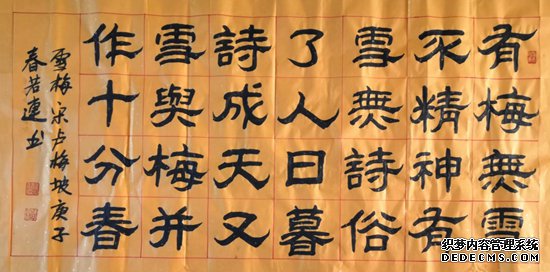 有梅無雪
不精神有
雪無詩俗
了人日暮
詩成天又
雪與梅并
作十分春
雪梅 宋卢梅坡庚子
春若連书
织梦内容管理系统
DEDECMS.COM